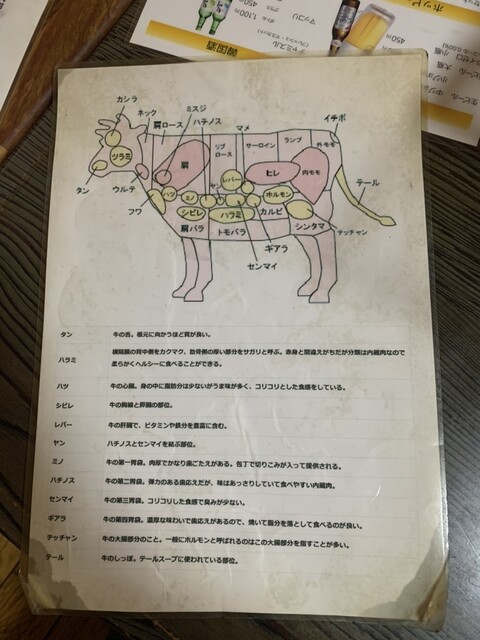 韓国酒
チャミスル
(フレッシュ・マスカット)
マッコリ
グラス
ボトル
450円
1,100円
ホッピー
450円
生ビール
カシラ
ネック
ミスジ
肩ロース
ハチノス
マメ
イチボ
リブ
ロース
サーロイン
ランプ
外モモ
ツラミ
肩
ヒレ
内モモ
タン
ウルテ
ハツ
ミノ
ヤン
レバー
ホルモン
テール
フワ
シビレ
ハラミ
カルビ
肩バラ
トモバラ
シンタマ
テッチャン
ギアラ
センマイ
タン 牛の舌。根元に向かうほど質が良い。
ハラミ 横隔膜の背中側をカクマク、肋骨側の厚い部分をサガリと呼ぶ。赤身と間違えがちだが分類は内臓肉なので
柔らかくヘルシーに食べることができる。
ハツ 牛の心臓。身の中に脂肪分は少ないがうま味が多く、コリコリとした食感をしている。
シビレ 牛の胸線と膵臓の部位。
レバー 牛の肝臓で、ビタミンや鉄分を豊富に含む。
ヤン ハチノスとセンマイを結ぶ部位。
ミノ 牛の第一胃袋。肉厚でかなり歯ごたえがある。包丁で切りこみが入って提供される。
ハチノス 牛の第二胃袋。弾力のある歯応えだが、味はあっさりしていて食べやすい内臓肉。
センマイ 牛の第三胃袋。コリコリした食感で臭みが少ない。
ギアラ 牛の第四胃袋。濃厚な味わいで歯応えがあるので、焼いて脂分を落として食べるのが良い。
テッチャン 牛の大腸部分のこと。一般にホルモンと呼ばれるのはこの大腸部分を指すことが多い。
テール 牛のしっぽ。テールスープに使われている部位。